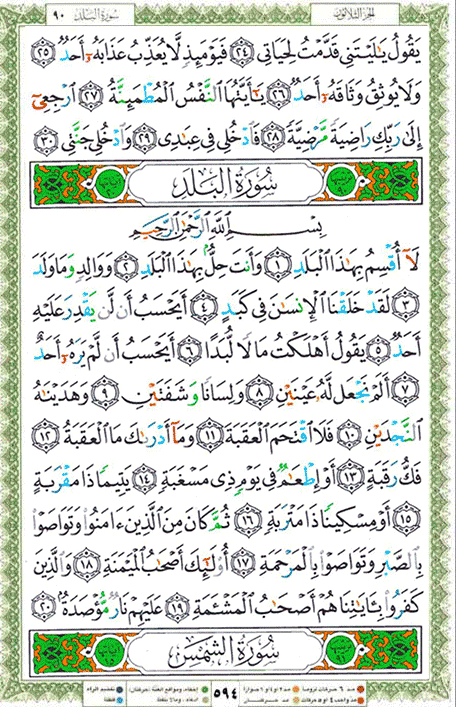 الجزء الثلاثون
سورة البلد
٩٠
يَقُولُ يَٰلَيْتَنِي قَدَّمْتُ لِحَيَاتِي ٢٤ فَيَوْمَئِذٍ لَّا يُعَذِّبُ عَذَابَهُۥٓ أَحَدٌ ٢٥
وَلَا يُوثِقُ وَثَاقَهُۥٓ أَحَدٌ ٢٦ يَٰٓأَيَّتُهَا ٱلنَّفْسُ ٱلْمُطْمَئِنَّةُ ٢٧ ٱرْجِعِيٓ
إِلَىٰ رَبِّكِ رَاضِيَةً مَّرْضِيَّةً ٢٨ فَٱدْخُلِي فِي عِبَٰدِي ٢٩ وَٱدْخُلِي جَنَّتِي ٣٠
سُورَةُ البَلَدِ
بِسْمِ ٱللَّهِ ٱلرَّحْمَٰنِ ٱلرَّحِيمِ
لَآ أُقْسِمُ بِهَٰذَا ٱلْبَلَدِ ١ وَأَنتَ حِلٌّۢ بِهَٰذَا ٱلْبَلَدِ ٢ وَوَالِدٍ وَمَا وَلَدَ
٣ لَقَدْ خَلَقْنَا ٱلْإِنسَٰنَ فِي كَبَدٍ ٤ أَيَحْسَبُ أَن لَّن يَقْدِرَ عَلَيْهِ
أَحَدٌ ٥ يَقُولُ أَهْلَكْتُ مَالًا لُّبَدًا ٦ أَيَحْسَبُ أَن لَّمْ يَرَهُۥٓ أَحَدٌ
٧ أَلَمْ نَجْعَل لَّهُۥ عَيْنَيْنِ ٨ وَلِسَانًا وَشَفَتَيْنِ ٩ وَهَدَيْنَٰهُ
ٱلنَّجْدَيْنِ ١٠ فَلَا ٱقْتَحَمَ ٱلْعَقَبَةَ ١١ وَمَآ أَدْرَىٰكَ مَا ٱلْعَقَبَةُ ١٢
فَكُّ رَقَبَةٍ ١٣ أَوْ إِطْعَٰمٌ فِي يَوْمٍ ذِي مَسْغَبَةٍ ١٤ يَتِيمًا ذَا مَقْرَبَةٍ
١٥ أَوْ مِسْكِينًا ذَا مَتْرَبَةٍ ١٦ ثُمَّ كَانَ مِنَ ٱلَّذِينَ ءَامَنُوا وَتَوَاصَوْا
بِٱلصَّبْرِ وَتَوَاصَوْا بِٱلْمَرْحَمَةِ ١٧ أُو۟لَٰٓئِكَ أَصْحَٰبُ ٱلْمَيْمَنَةِ ١٨ وَٱلَّذِينَ
كَفَرُوا بِـَٔايَٰتِنَا هُمْ أَصْحَٰبُ ٱلْمَشْـَٔمَةِ ١٩ عَلَيْهِمْ نَارٌ مُّؤْصَدَةٌۢ ٢٠
سُورَةُ الشَّمْسِ
٥٩٤